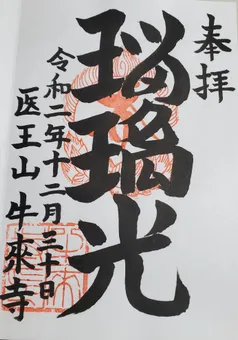 奉拝
瑠璃光
令和二年十二月三十日
医王山牛来寺